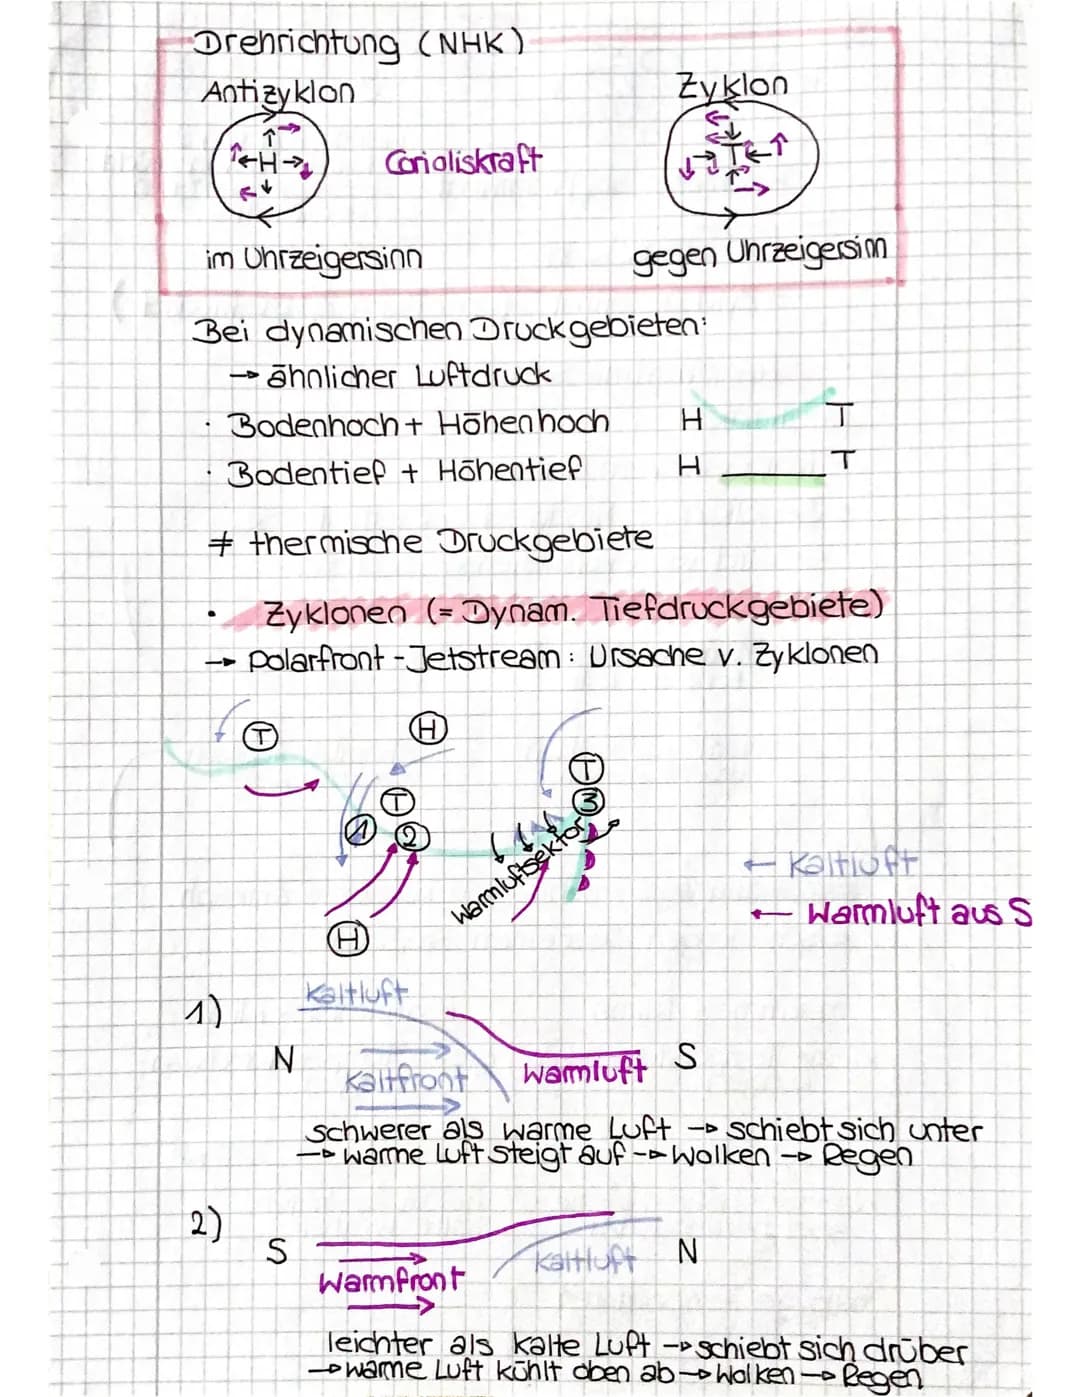 Drehrichtung (NHK)
Antizyklon
Zyklon
H
Corioliskraft
T
im Uhrzeigersinn
gegen Uhrzeigersinn
Bei dynamischen Druckgebieten:
→ ähnlicher Luftdruck
· Bodenhoch + Höhenhoch H T
· Bodentief + Höhentief H T
≠ thermische Druckgebiete
• Zyklonen (= Dynam. Tiefdruckgebiete)
→ Polarfront-Jetstream: Ursache v. Zyklonen
T
H
T
T
1
2
3
Warmluftsektor
H
← Kaltluft
← Warmluft aus S
1)
Kaltluft
N
S
Kaltfront
Warmluft
schwerer als warme Luft → schiebt sich unter
→ warme Luft steigt auf → Wolken → Regen
2)
S
N
Warmfront
Kaltluft
leichter als kalte Luft → schiebt sich drüber
→ warme Luft kühlt oben ab → Wolken → Regen